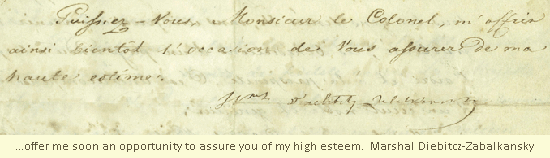 Puissiez-Vous, Monsieur le Colonel, m'offrir
ainsi bientot l'occasion de Vous assurer de ma
haute estime.
...offer me soon an opportunity to assure you of my high esteem. Marshal Diebitcz-Zabalkansky